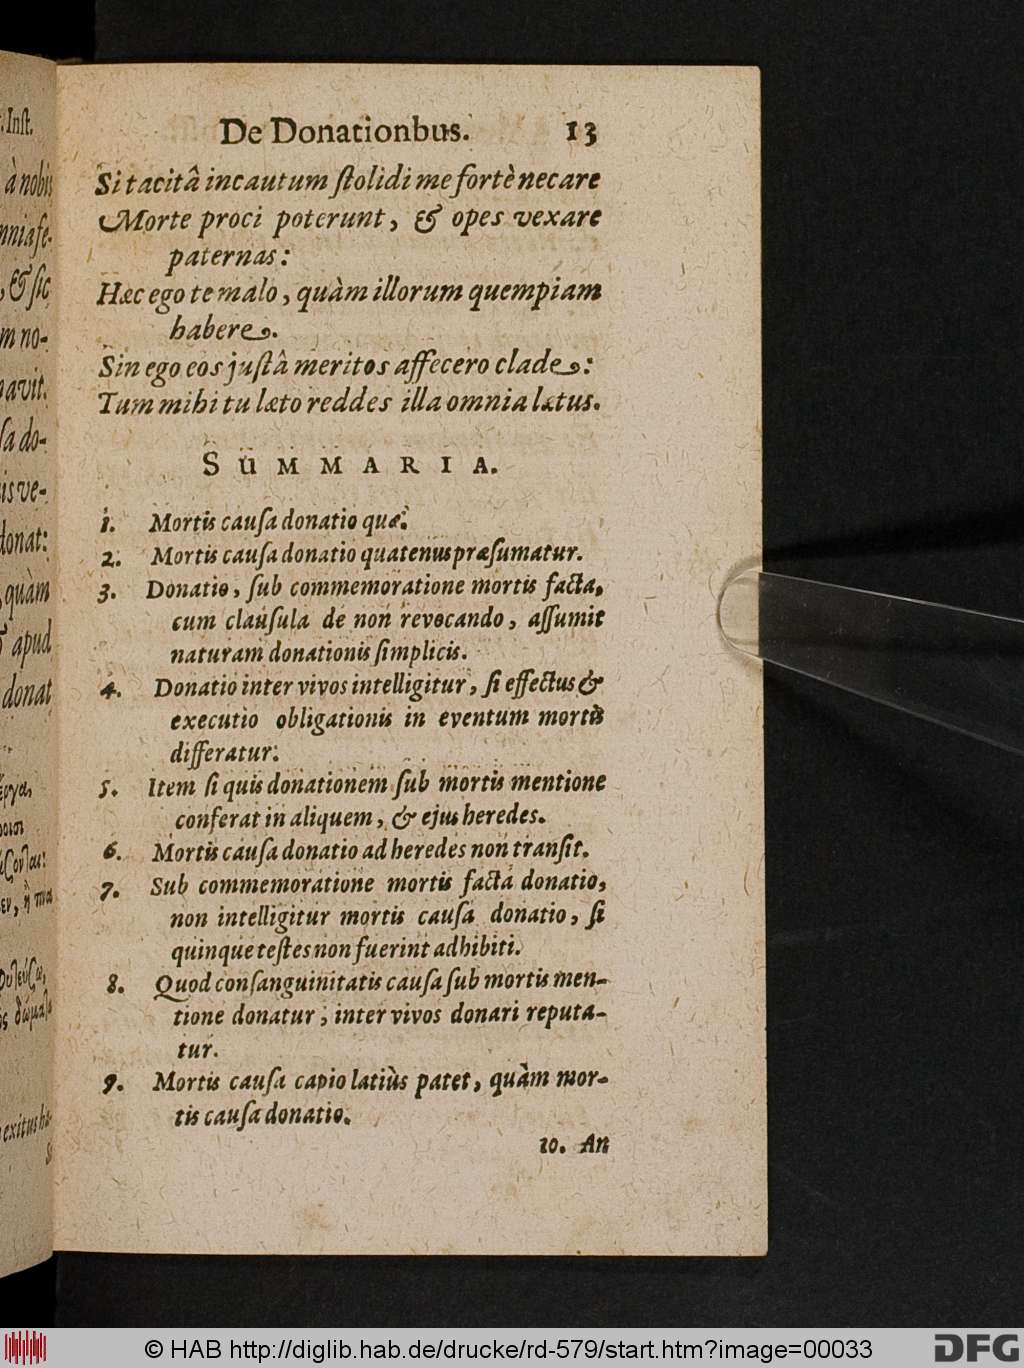 . Inſt.
à nobis
mniaſe-
, & ſic
m no-
navit.
ſa do-
is ve-
donat:
, quàm
apud
donat
De Donationbus. 13
Si tacitâ incautum ſtolidi me fortè necare
Morte proci poterunt, & opes vexare
paternas:
Hæc ego te malo, quàm illorum quempiam
habere.
Sin ego eos juſtâ meritos affecero clade:
Tum mihi tu læto reddes illa omnia lætus.
SUMMARIA.
1. Mortis cauſa donatio quæ.
2. Mortis cauſa donatio quatenus præſumatur.
3. Donatio, ſub commemoratione mortis facta,
cum clauſula de non revocando, aſſumit
naturam donationis ſimplicis.
4. Donatio inter vivos intelligitur, ſi effectus &
executio obligationis in eventum mortis
differatur.
5. Item ſi quis donationem ſub mortis mentione
conferat in aliquem, & ejus heredes.
6. Mortis cauſa donatio ad heredes non tranſit.
7. Sub commemoratione mortis facta donatio,
non intelligitur mortis cauſa donatio, ſi
quinque teſtes non fuerint adhibiti.
8. Quod conſanguinitatis cauſa ſub mortis men-
tione donatur, inter vivos donari reputa-
tur.
9. Mortis cauſa capio latiùs patet, quàm mor-
tis cauſa donatio.
10. An
© HAB http://diglib.hab.de/drucke/rd-579/start.htm?image=00033
DFG